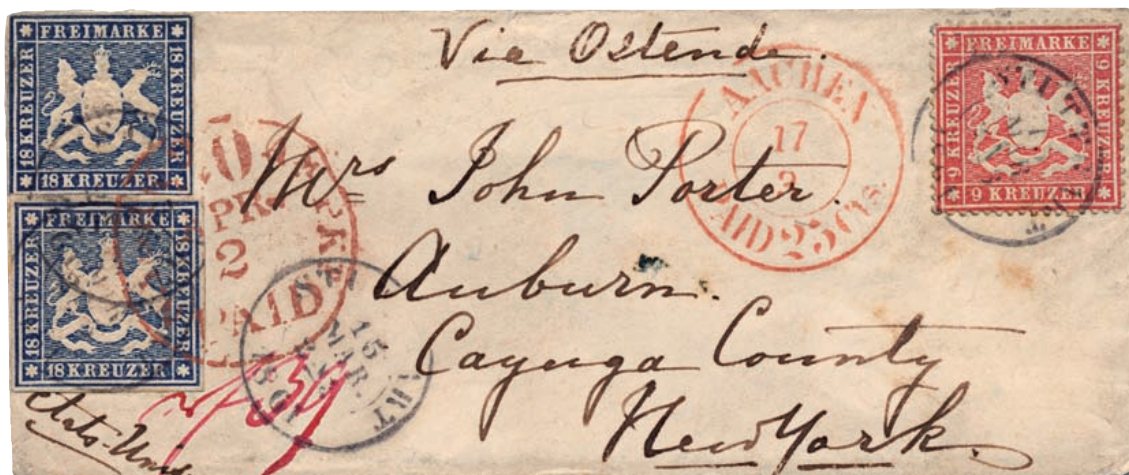 FREIMARKE
18 KREUZER
18 KREUZER
18 KREUZER
FREIMARKE
18 KREUZER
18 KREUZER
18 KREUZER
Via Ostende.
AACHEN
17
3
PAID 25 Cts.
FREIMARKE
9 KREUZER
9 KREUZER
9 KREUZER
Mrs John Porter.
Auburn.
Cayuga County
New York.
APR
2
PAID
15
MAR.
Etats-Unis